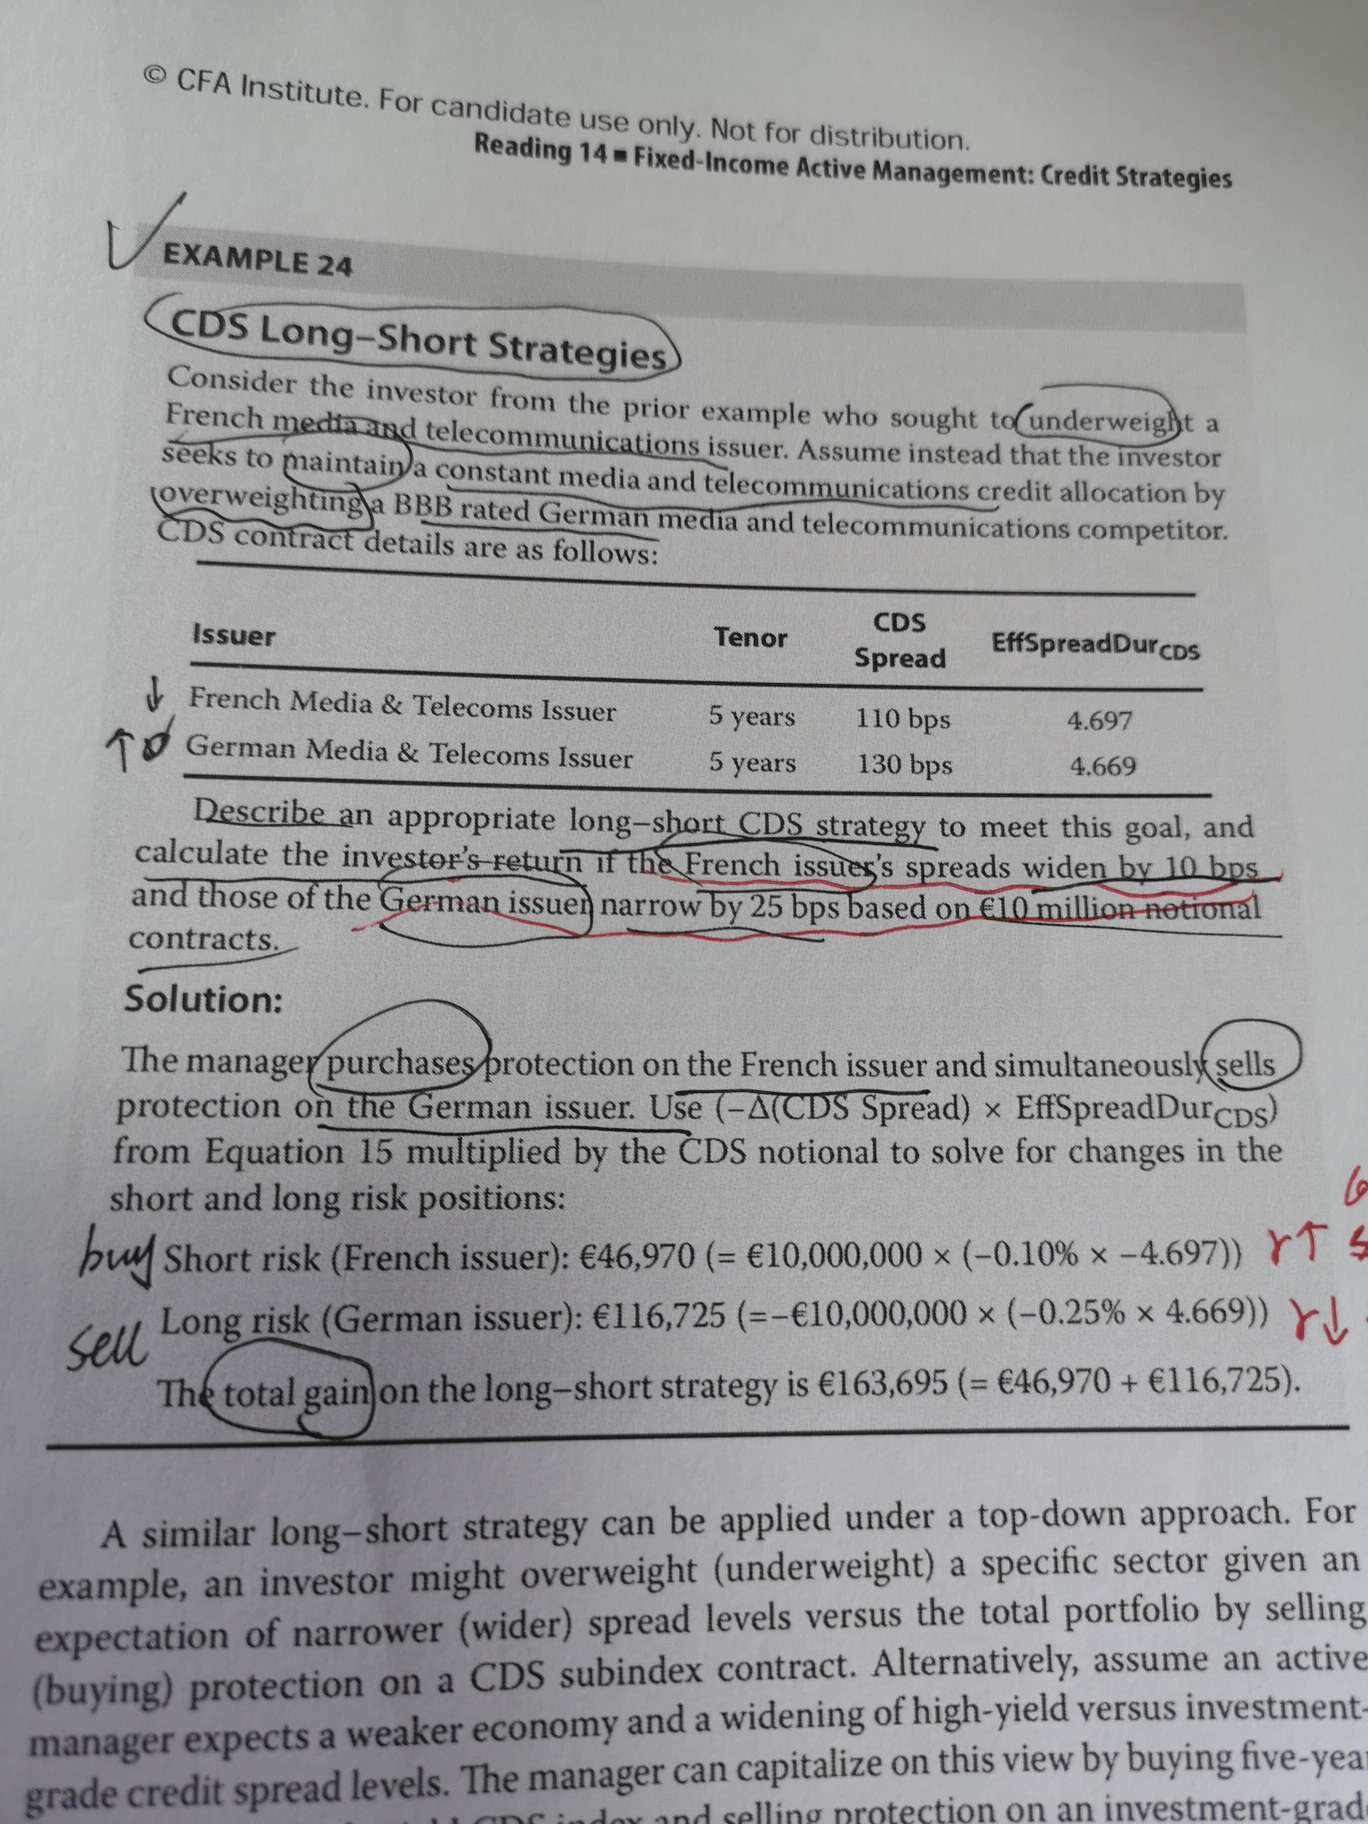 © CFA Institute. For candidate use only. Not for distribution.
Reading 14 ■ Fixed-Income Active Management: Credit Strategies
EXAMPLE 24
CDS Long–Short Strategies
Consider the investor from the prior example who sought to underweight a
French media and telecommunications issuer. Assume instead that the investor
seeks to maintain a constant media and telecommunications credit allocation by
overweighting a BBB rated German media and telecommunications competitor.
CDS contract details are as follows:
Issuer Tenor CDS Spread EffSpreadDurCDS
↓ French Media & Telecoms Issuer 5 years 110 bps 4.697
↑ German Media & Telecoms Issuer 5 years 130 bps 4.669
Describe an appropriate long–short CDS strategy to meet this goal, and
calculate the investor's return if the French issuer's spreads widen by 10 bps
and those of the German issuer narrow by 25 bps based on €10 million notional
contracts.
Solution:
The manager purchases protection on the French issuer and simultaneously sells
protection on the German issuer. Use (−Δ(CDS Spread) × EffSpreadDurCDS)
from Equation 15 multiplied by the CDS notional to solve for changes in the
short and long risk positions:
buy Short risk (French issuer): €46,970 (= €10,000,000 × (−0.10% × −4.697)) r↑
sell Long risk (German issuer): €116,725 (=−€10,000,000 × (−0.25% × 4.669)) r↓
The total gain on the long–short strategy is €163,695 (= €46,970 + €116,725).
A similar long–short strategy can be applied under a top-down approach. For
example, an investor might overweight (underweight) a specific sector given an
expectation of narrower (wider) spread levels versus the total portfolio by selling
(buying) protection on a CDS subindex contract. Alternatively, assume an active
manager expects a weaker economy and a widening of high-yield versus investment-
grade credit spread levels. The manager can capitalize on this view by buying five-year
CDS index and selling protection on an investment-grade